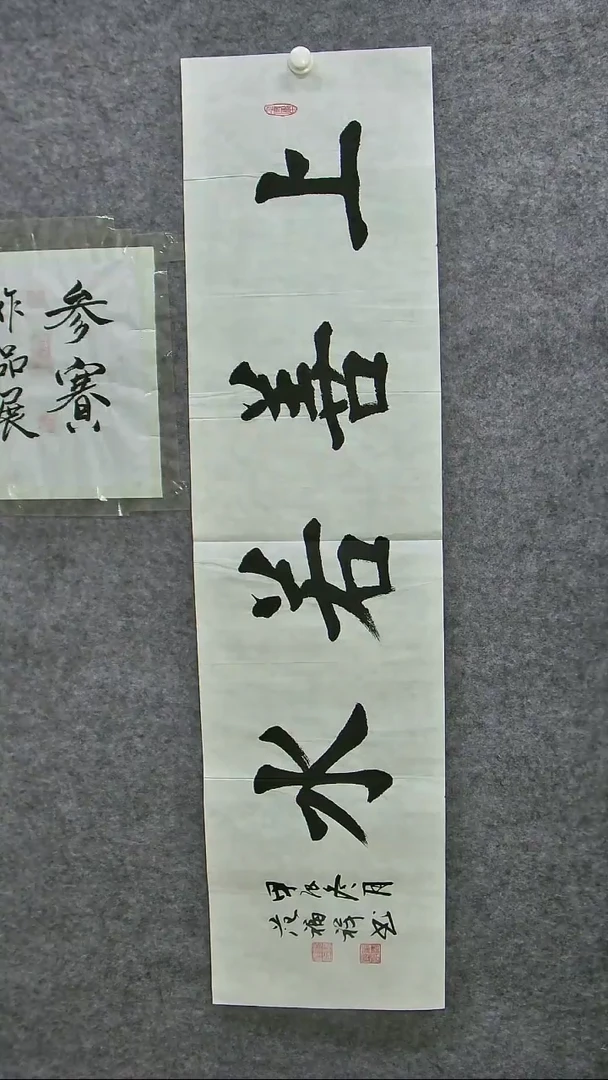 参賽
作品展
上善若水
甲辰冬月
范福祥书